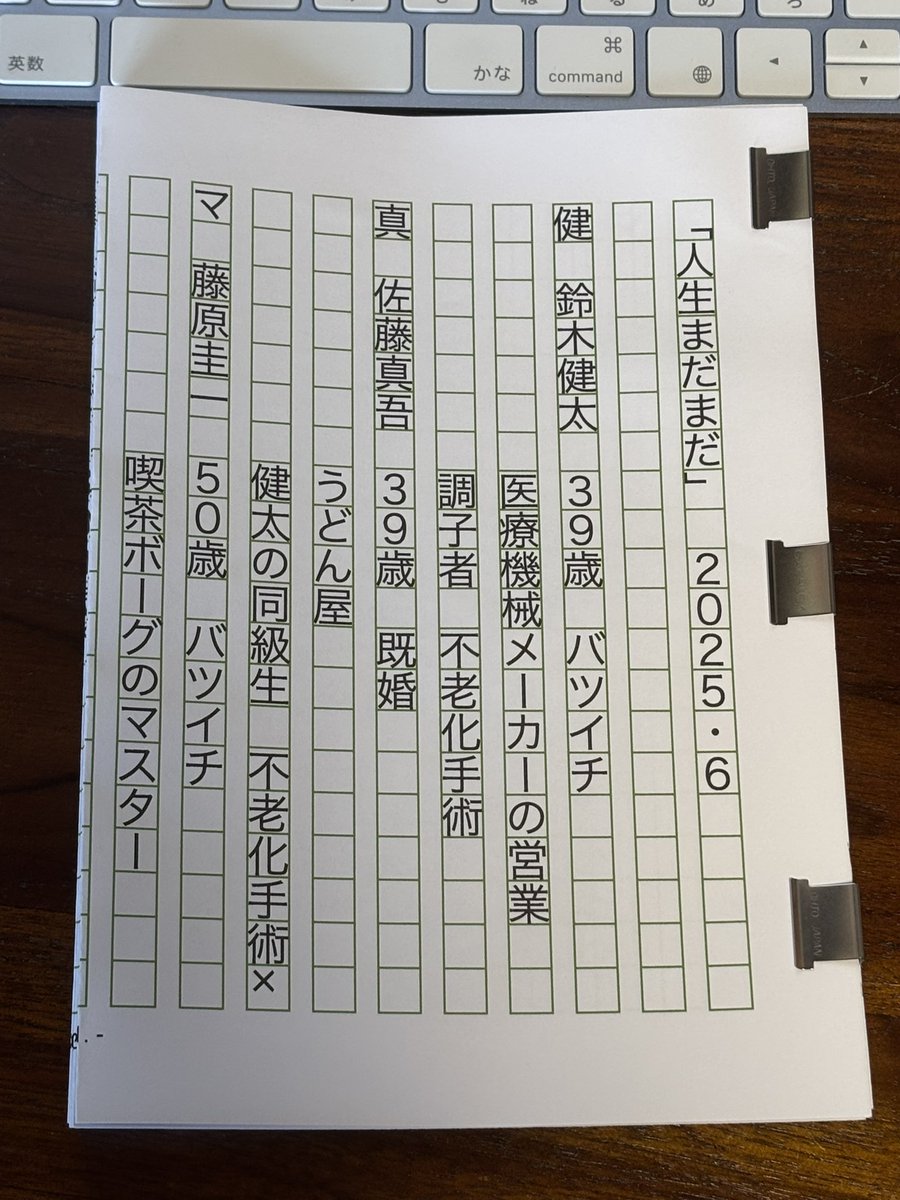 英数
かな
⌘
command
「人生まだまだ」　2025・6
健　鈴木健太　39歳　バツイチ
医療機械メーカーの営業
調子者　不老化手術
真　佐藤真吾　39歳　既婚
うどん屋
健太の同級生　不老化手術×
マ　藤原圭一　50歳　バツイチ
喫茶ボーグのマスター